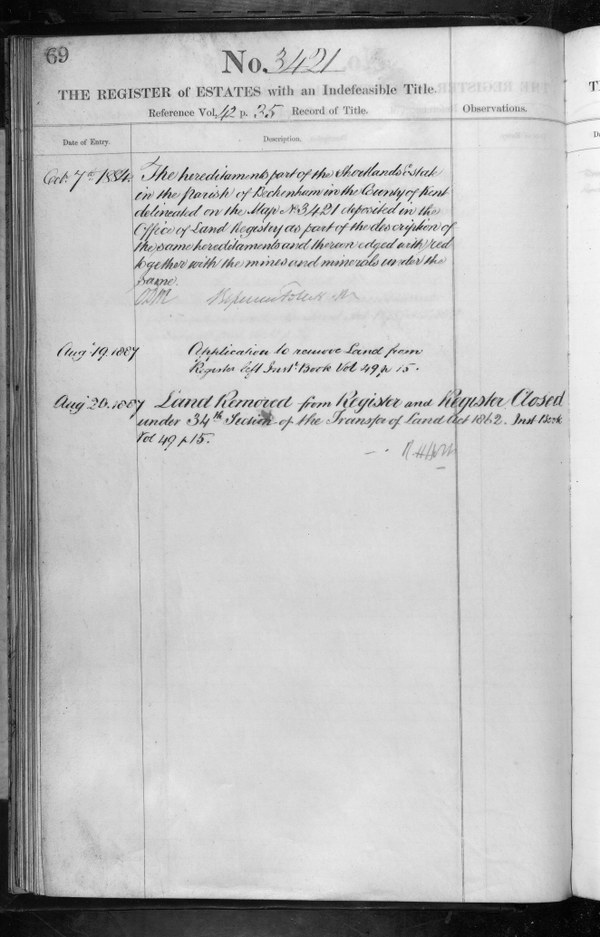 69
No. 3421
THE REGISTER of ESTATES with an Indefeasible Title.
Reference Vol. 42 p. 35 Record of Title.
Observations.
Date of Entry.
Description.
Oct. 7th 1884.
The hereditaments part of the Shortlands Estate
in the Parish of Beckenham in the County of Kent
delineated on the Map No 3421 deposited in the
Office of Land Registry as part of the description of
the same hereditaments and thereon edged with red
together with the mines and minerals under the
Same.
Augt 19. 1887
Application to remove Land from
Register left Inst. Book Vol 49 p 15.
Augt 20. 1887
Land Removed from Register and Register Closed
under 34th Section of the Transfer of Land Act 1862. Inst Book
Vol 49 p 15.